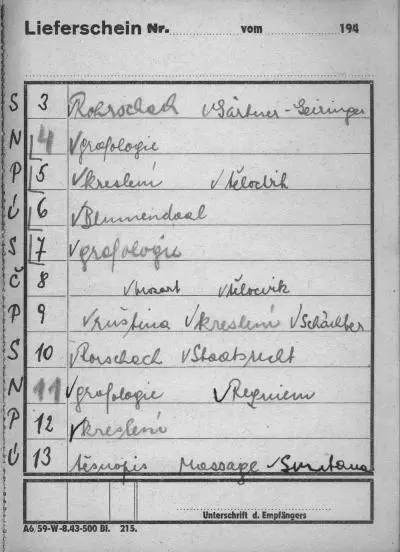 Lieferschein Nr. vom 194
S 3 Rohrschach √Gärtner-Geiringer
N 4 √grafologie
P 5 √kreslení √tělocvik
Ú 6 √Blumendaal
S 7 √grafologie
Č 8 √mozart √tělocvik
P 9 √ruština √kreslení √Schächter
S 10 Rorschach √Staatsrecht
N 11 √grafologie √Requiem
P 12 √kreslení
Ú 13 těsnopis Massage √Smetana
Unterschrift d. Empfängers
A6/59-W-8.43-500 Bl. 215.